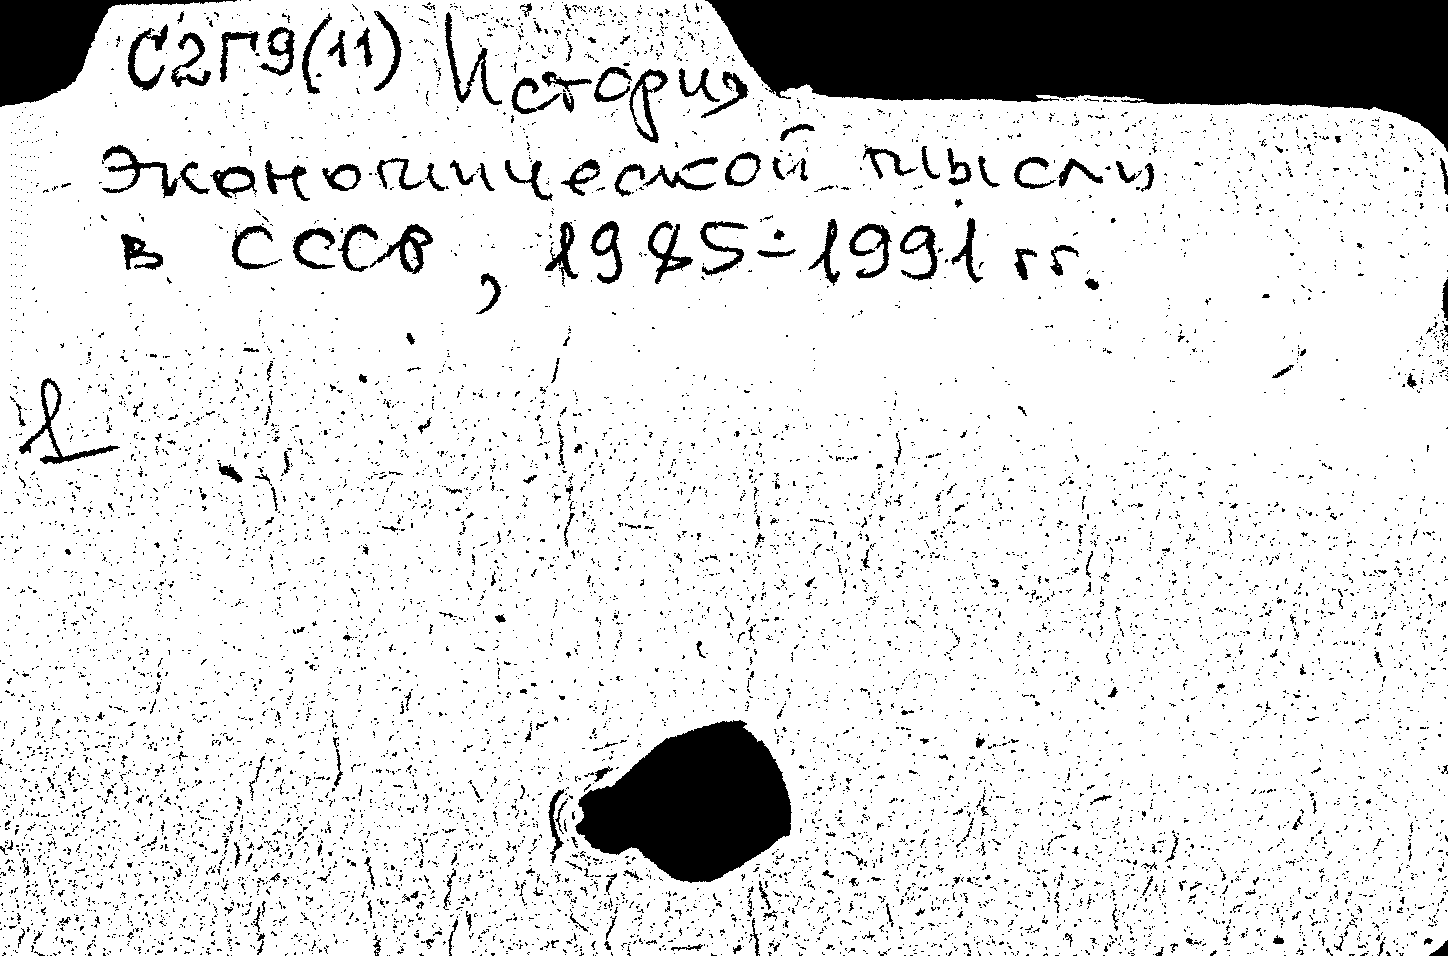 С2Г9(11) История
экономической мысли
в СССР, 1985-1991 гг.
1